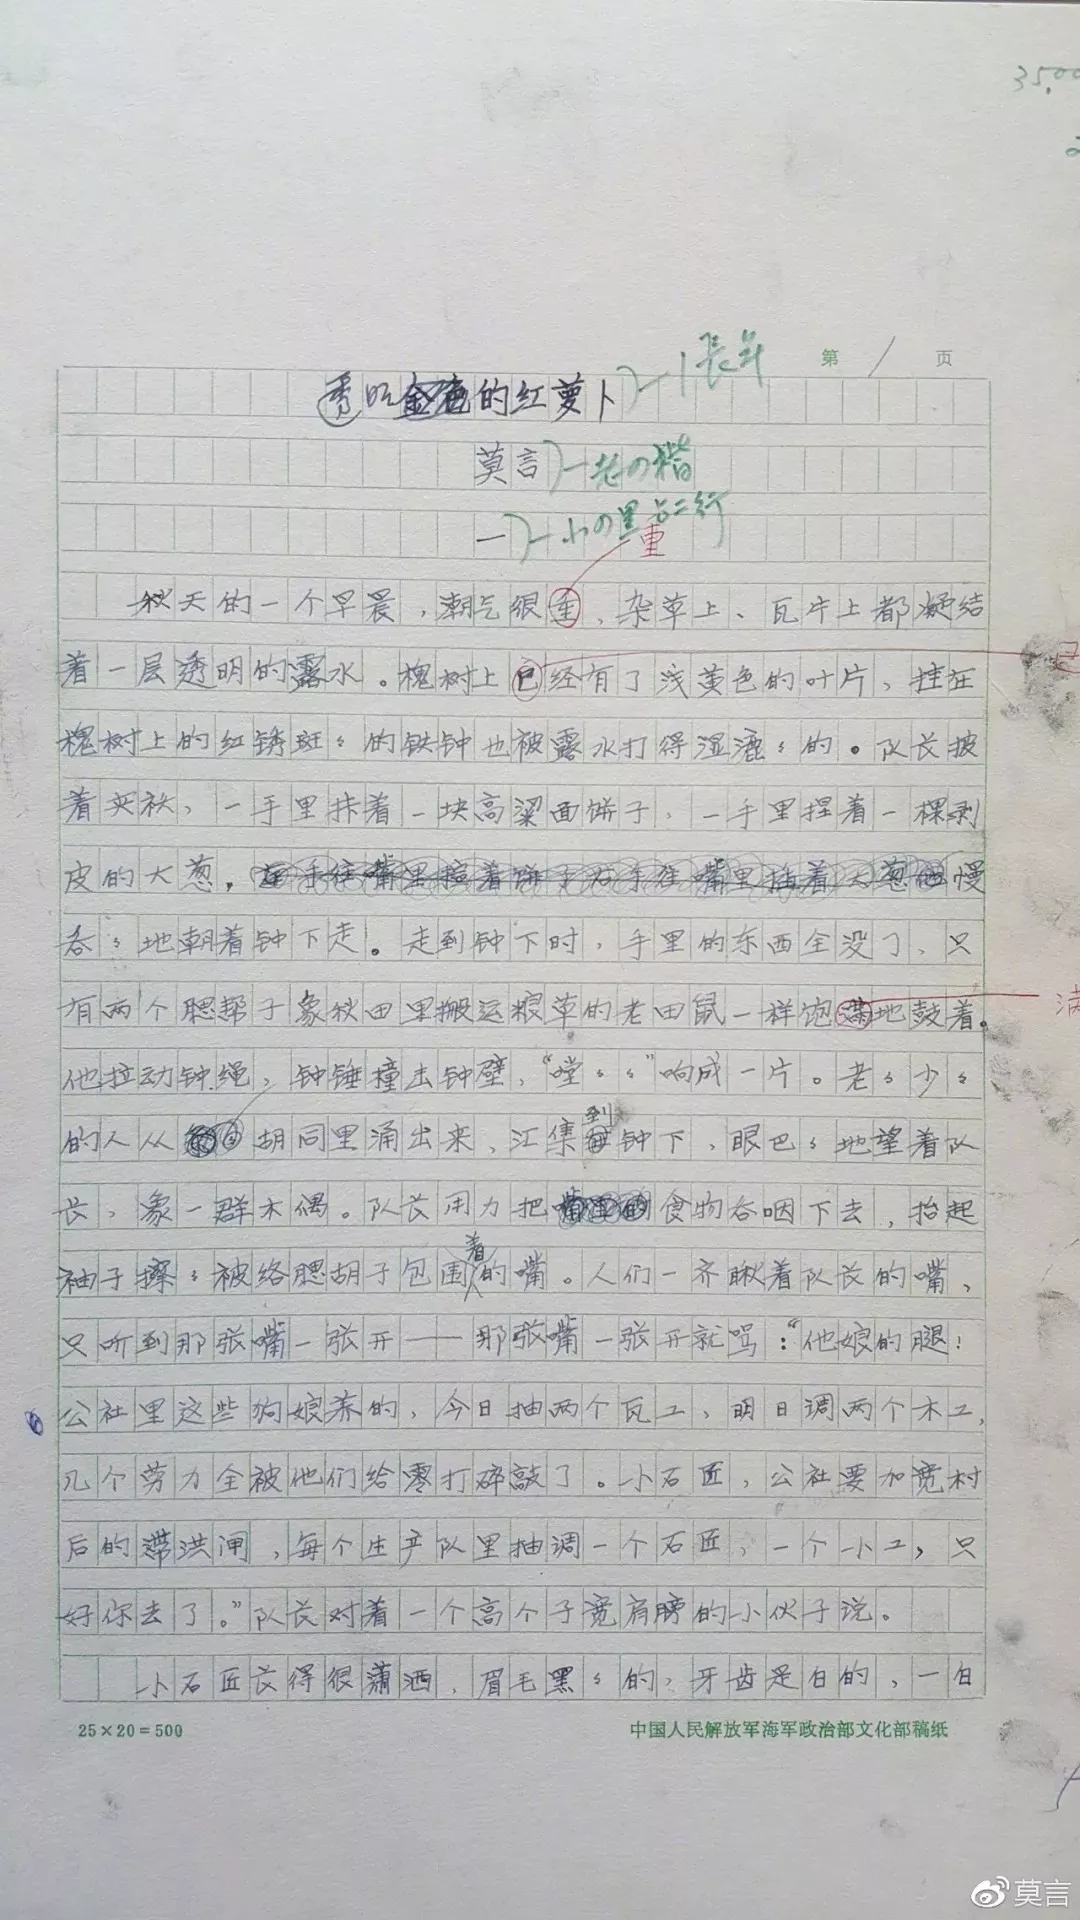 35.00
第 1 页
透明金色的红萝卜
莫言
一
重
秋天的一个早晨，潮气很重，杂草上、瓦片上都凝结
着一层透明的露水。槐树上已经有了浅黄色的叶片，挂在
槐树上的红锈斑々的铁钟也被露水打得湿漉々的。队长披
着夹袄，一手里拤着一块高粱面饼子，一手里捏着一棵剥
皮的大葱，慢
吞々地朝着钟下走。走到钟下时，手里的东西全没了，只
有两个腮帮子象秋田里搬运粮草的老田鼠一样饱满地鼓着。
满
他拉动钟绳，钟锤撞击钟壁，“嘡々々”响成一片。老々少々
的人从胡同里涌出来，汇集到钟下，眼巴々地望着队
长，象一群木偶。队长用力把食物吞咽下去，抬起
袖子擦々被络腮胡子包围着的嘴。人们一齐瞅着队长的嘴，
只听到那张嘴一张开——那张嘴一张开就骂：“他娘的腿！
公社里这些狗娘养的，今日抽两个瓦工，明日调两个木工，
几个劳力全被他们给零打碎敲了。小石匠，公社要加宽村
后的滞洪闸，每个生产队里抽调一个石匠，一个小工，只
好你去了。”队长对着一个高个子宽肩膀的小伙子说。
小石匠长得很潇洒，眉毛黑々的，牙齿是白的，一白
25×20=500
中国人民解放军海军政治部文化部稿纸
莫言